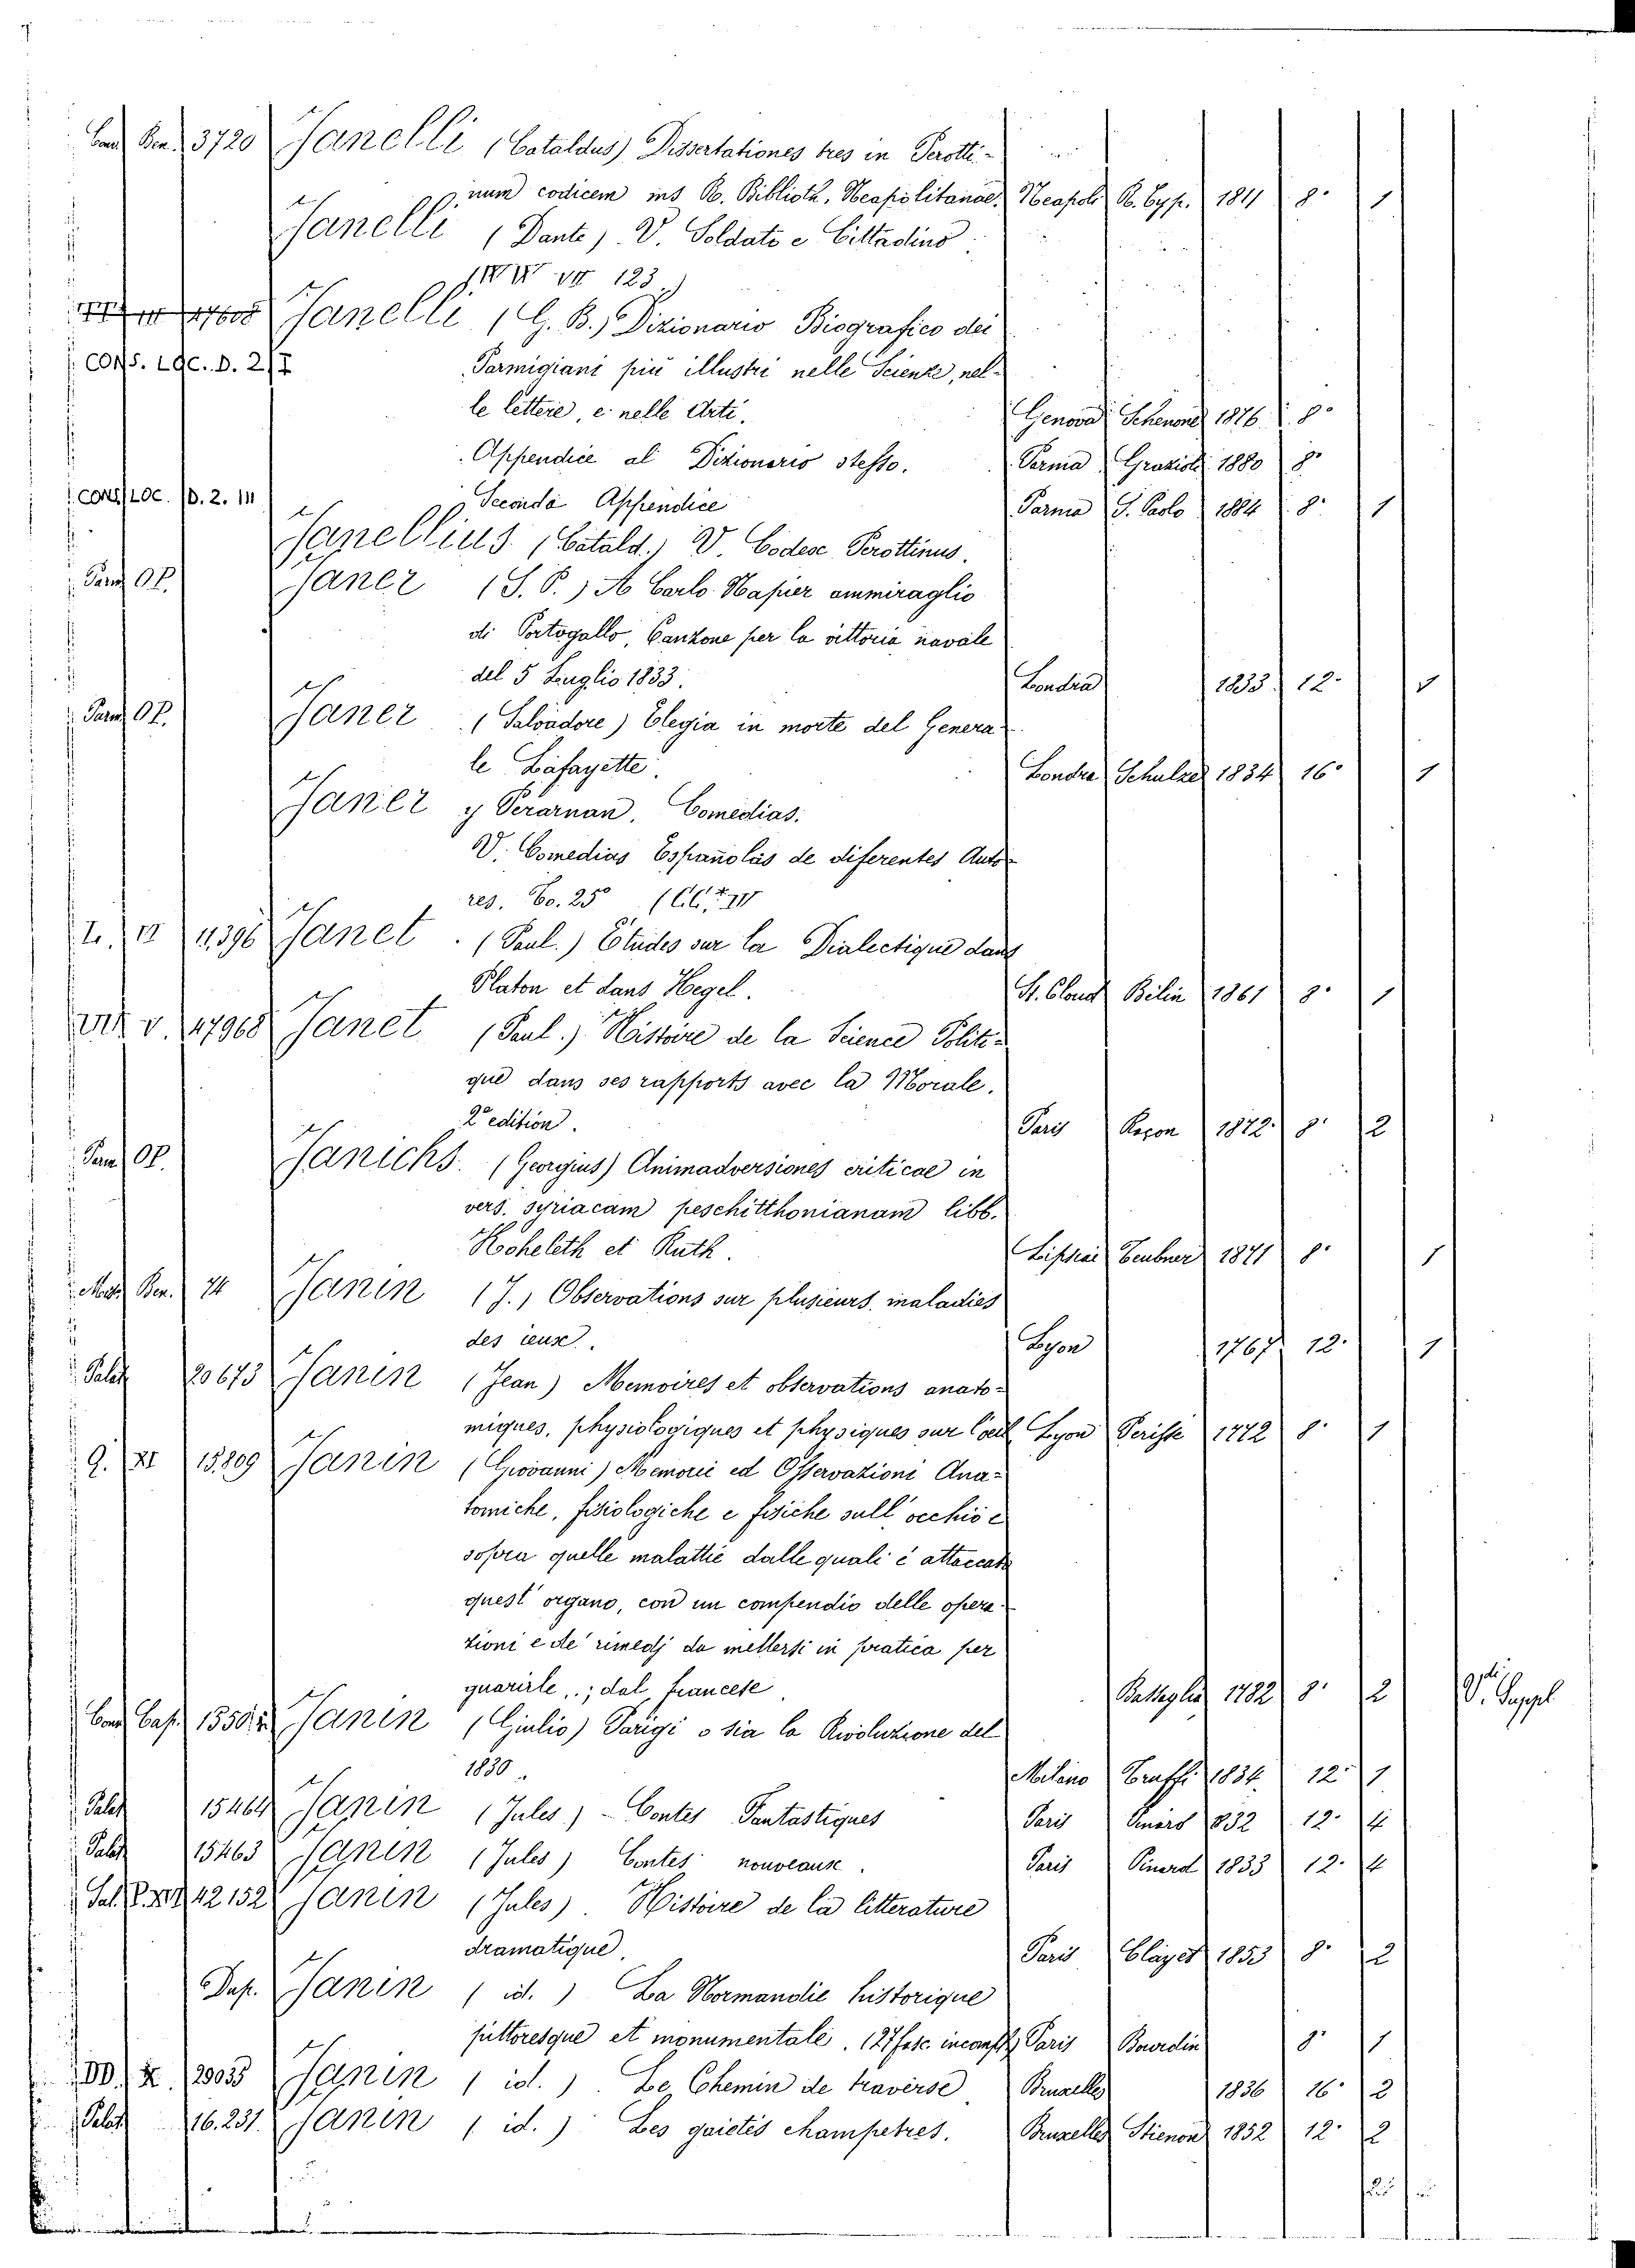 3720 Janelli (Cataldus) Dissertationes tres in Perotti-
num codicem ms R. Biblioth. Neapolitanae. Neapoli R. Typ. 1811 8° 1
Janelli (Dante) V. Soldato e Cittadino
123.)
Janelli (G. B.) Dizionario Biografico dei
CONS. LOC. D. 2/I Parmigiani più illustri nelle Scienze, nel-
le lettere, e nelle Arti. Genova Schenone 1876 8°
Appendice al Dizionario stesso. Parma Grazioli 1880 8°
CONS. LOC. D. 2. III Seconda Appendice Parma S. Paolo 1884 8° 1
Janellius (Catald.) V. Codex Perottinus.
Parm. OP. Janer (S. P.) A Carlo Napier ammiraglio
di Portogallo, Canzone per la vittoria navale
del 5 Luglio 1833. Londra 1833 12° 1
Parm. OP. Janer (Salvadore) Elegia in morte del Genera
le Lafayette. Londra Schulze 1834 16° 1
Janer y Perarnan. Comedias.
V. Comedias Españolas de diferentes Auto-
res. To. 25°
Janet (Paul.) Études sur la Dialectique dans
Platon et dans Hegel. St. Cloud Belin 1861 8° 1
47968 Janet (Paul.) Histoire de la Science Politi-
que dans ses rapports avec la Morale.
2e edition. Paris Raçon 1872 8° 2
Parm. OP. Janichs. (Georgius) Animadversiones criticae in
vers. syriacam peschitthonianam libb.
Koheleth et Ruth. Lipsiae Teubner 1871 8° 1
74 Janin (J.) Observations sur plusieurs maladies
des ieux. Lyon 1767 12° 1
Palat. 20673 Janin (Jean) Memoires et observations anato-
miques, physiologiques et physiques sur l'oeil Lyon Perisse 1772 8° 1
G. XI 15209 Janin (Giovanni) Memorie ed Osservazioni Ana-
tomiche, fisiologiche e fisiche sull'occhio e
sopra quelle malattie dalle quali è attaccato
quest'organo, con un compendio delle opera-
zioni e de' rimedj da mettersi in pratica per
guarirle..; dal francese Battaglia 1782 8° 2 V. Suppl
Janin (Giulio) Parigi o sia la Rivoluzione del
1830. Milano Truffi 1834 12° 1
Palat 15464 Janin (Jules) - Contes Fantastiques Paris 1832 12° 4
Palat 15463 Janin (Jules) Contes nouveaux. Paris Pinard 1833 12° 4
42152 Janin (Jules). Histoire de la litterature
dramatique. Paris Claye 1853 8° 2
Dep. Janin (id.) La Normandie historique
pittoresque et monumentale. 127 fasc. incompl. Paris Bourdin 8° 1
Janin (id.). Le Chemin de traverse Bruxelles 1836 16° 2
Palat 16.231. Janin (id.) Les gaietés champetres. Bruxelles Stienon 1852 12° 2